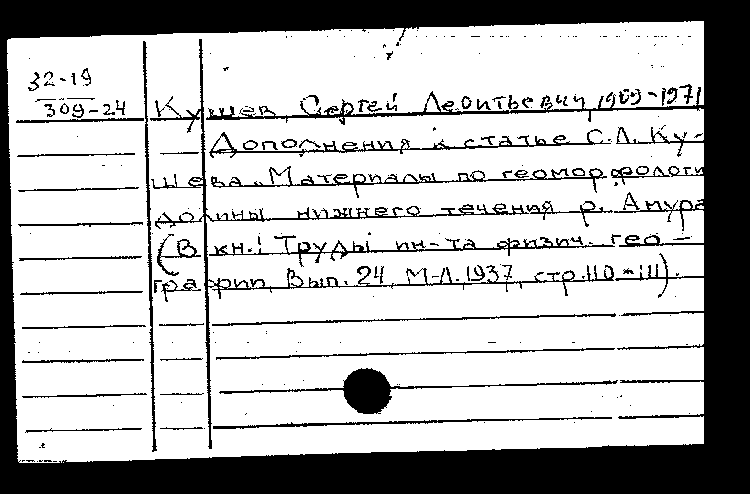 32-19
309-24
Кушев, Сергей Леонтьевич, 1909-1971
Дополнения к статье С.Л. Ку-
шева „Материалы по геоморфологи
долины нижнего течения р. Амура
(В кн.: Труды ин-та физич. гео-
графии, Вып. 24, М-Л. 1937, стр. 110-111).